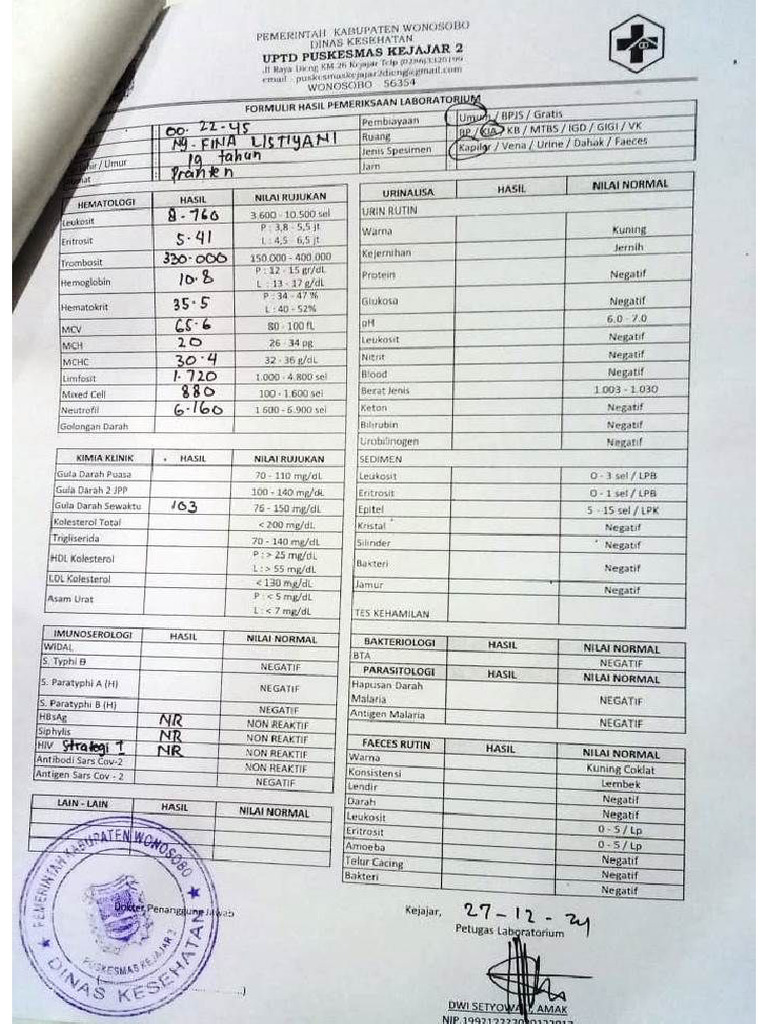 PEMERINTAH KABUPATEN WONOSOBO
DINAS KESEHATAN
UPTD PUSKESMAS KEJAJAR 2
Jl Raya Dieng KM 26 Kejajar Telp
email : puskesmaskejajar2dieng@gmail.com
WONOSOBO 56354
FORMULIR HASIL PEMERIKSAAN LABORATORIUM
: 00-22-45
: Ny. FINA LISTIYANI
/ Umur : 19 tahun
: Pranten
Pembiayaan : Umum / BPJS / Gratis
Ruang : BP / KIA / KB / MTBS / IGD / GIGI / VK
Jenis Spesimen : Kapiler / Vena / Urine / Dahak / Faeces
Jam :
HEMATOLOGI HASIL NILAI RUJUKAN
Leukosit 8.760 3.600 - 10.500 sel
Eritrosit 5.41 P : 3,8 - 5,5 jt
L : 4,5 6,5 jt
Trombosit 330.000 150.000 - 400.000
Hemoglobin 10.8 P : 12 - 15 gr/dL
L : 13 - 17 g/dL
Hematokrit 35.5 P : 34 - 47 %
L : 40 - 52%
MCV 65.6 80 - 100 fL
MCH 20 26 - 34 pg
MCHC 30.4 32 - 36 g/dL
Limfosit 1.720 1.000 - 4.800 sel
Mixed Cell 880 100 - 1.600 sel
Neutrofil 6.160 1 600 - 6.900 sel
Golongan Darah
KIMIA KLINIK HASIL NILAI RUJUKAN
Gula Darah Puasa 70 - 110 mg/dL
Gula Darah 2 JPP 100 - 140 mg/dL
Gula Darah Sewaktu 103 76 - 150 mg/dL
Kolesterol Total < 200 mg/dL
Trigliserida 70 - 140 mg/dL
HDL Kolesterol P : > 25 mg/dL
L : > 55 mg/dL
LDL Kolesterol < 130 mg/dL
Asam Urat P : < 5 mg/dL
L : < 7 mg/dL
IMUNOSEROLOGI HASIL NILAI NORMAL
WIDAL
S. Typhi B NEGATIF
S. Paratyphi A (H) NEGATIF
S. Paratyphi B (H) NEGATIF
HBsAg NR NON REAKTIF
Siphylis NR NON REAKTIF
HIV Strategi 1 NR NON REAKTIF
Antibodi Sars Cov-2 NON REAKTIF
Antigen Sars Cov - 2 NEGATIF
LAIN - LAIN HASIL NILAI NORMAL
URINALISA HASIL NILAI NORMAL
URIN RUTIN
Warna Kuning
Kejernihan Jernih
Protein Negatif
Glukosa Negatif
pH 6.0 - 7.0
Leukosit Negatif
Nitrit Negatif
Blood Negatif
Berat Jenis 1.003 - 1.030
Keton Negatif
Bilirubin Negatif
Urobilinogen Negatif
SEDIMEN
Leukosit 0 - 3 sel / LPB
Eritrosit 0 - 1 sel / LPB
Epitel 5 - 15 sel / LPK
Kristal Negatif
Silinder Negatif
Bakteri Negatif
Jamur Negatif
TES KEHAMILAN
BAKTERIOLOGI HASIL NILAI NORMAL
BTA NEGATIF
PARASITOLOGI HASIL NILAI NORMAL
Hapusan Darah
Malaria NEGATIF
Antigen Malaria NEGATIF
FAECES RUTIN HASIL NILAI NORMAL
Warna Kuning Coklat
Konsistensi Lembek
Lendir Negatif
Darah Negatif
Leukosit 0 - 5 / Lp
Eritrosit 0 - 5 / Lp
Amoeba Negatif
Telur Cacing Negatif
Bakteri Negatif
PEMERINTAH KABUPATEN WONOSOBO
PUSKESMAS KEJAJAR 2
DINAS KESEHATAN
Dokter Penanggung Jawab
Kejajar, 27-12-24
Petugas Laboratorium
AMAK